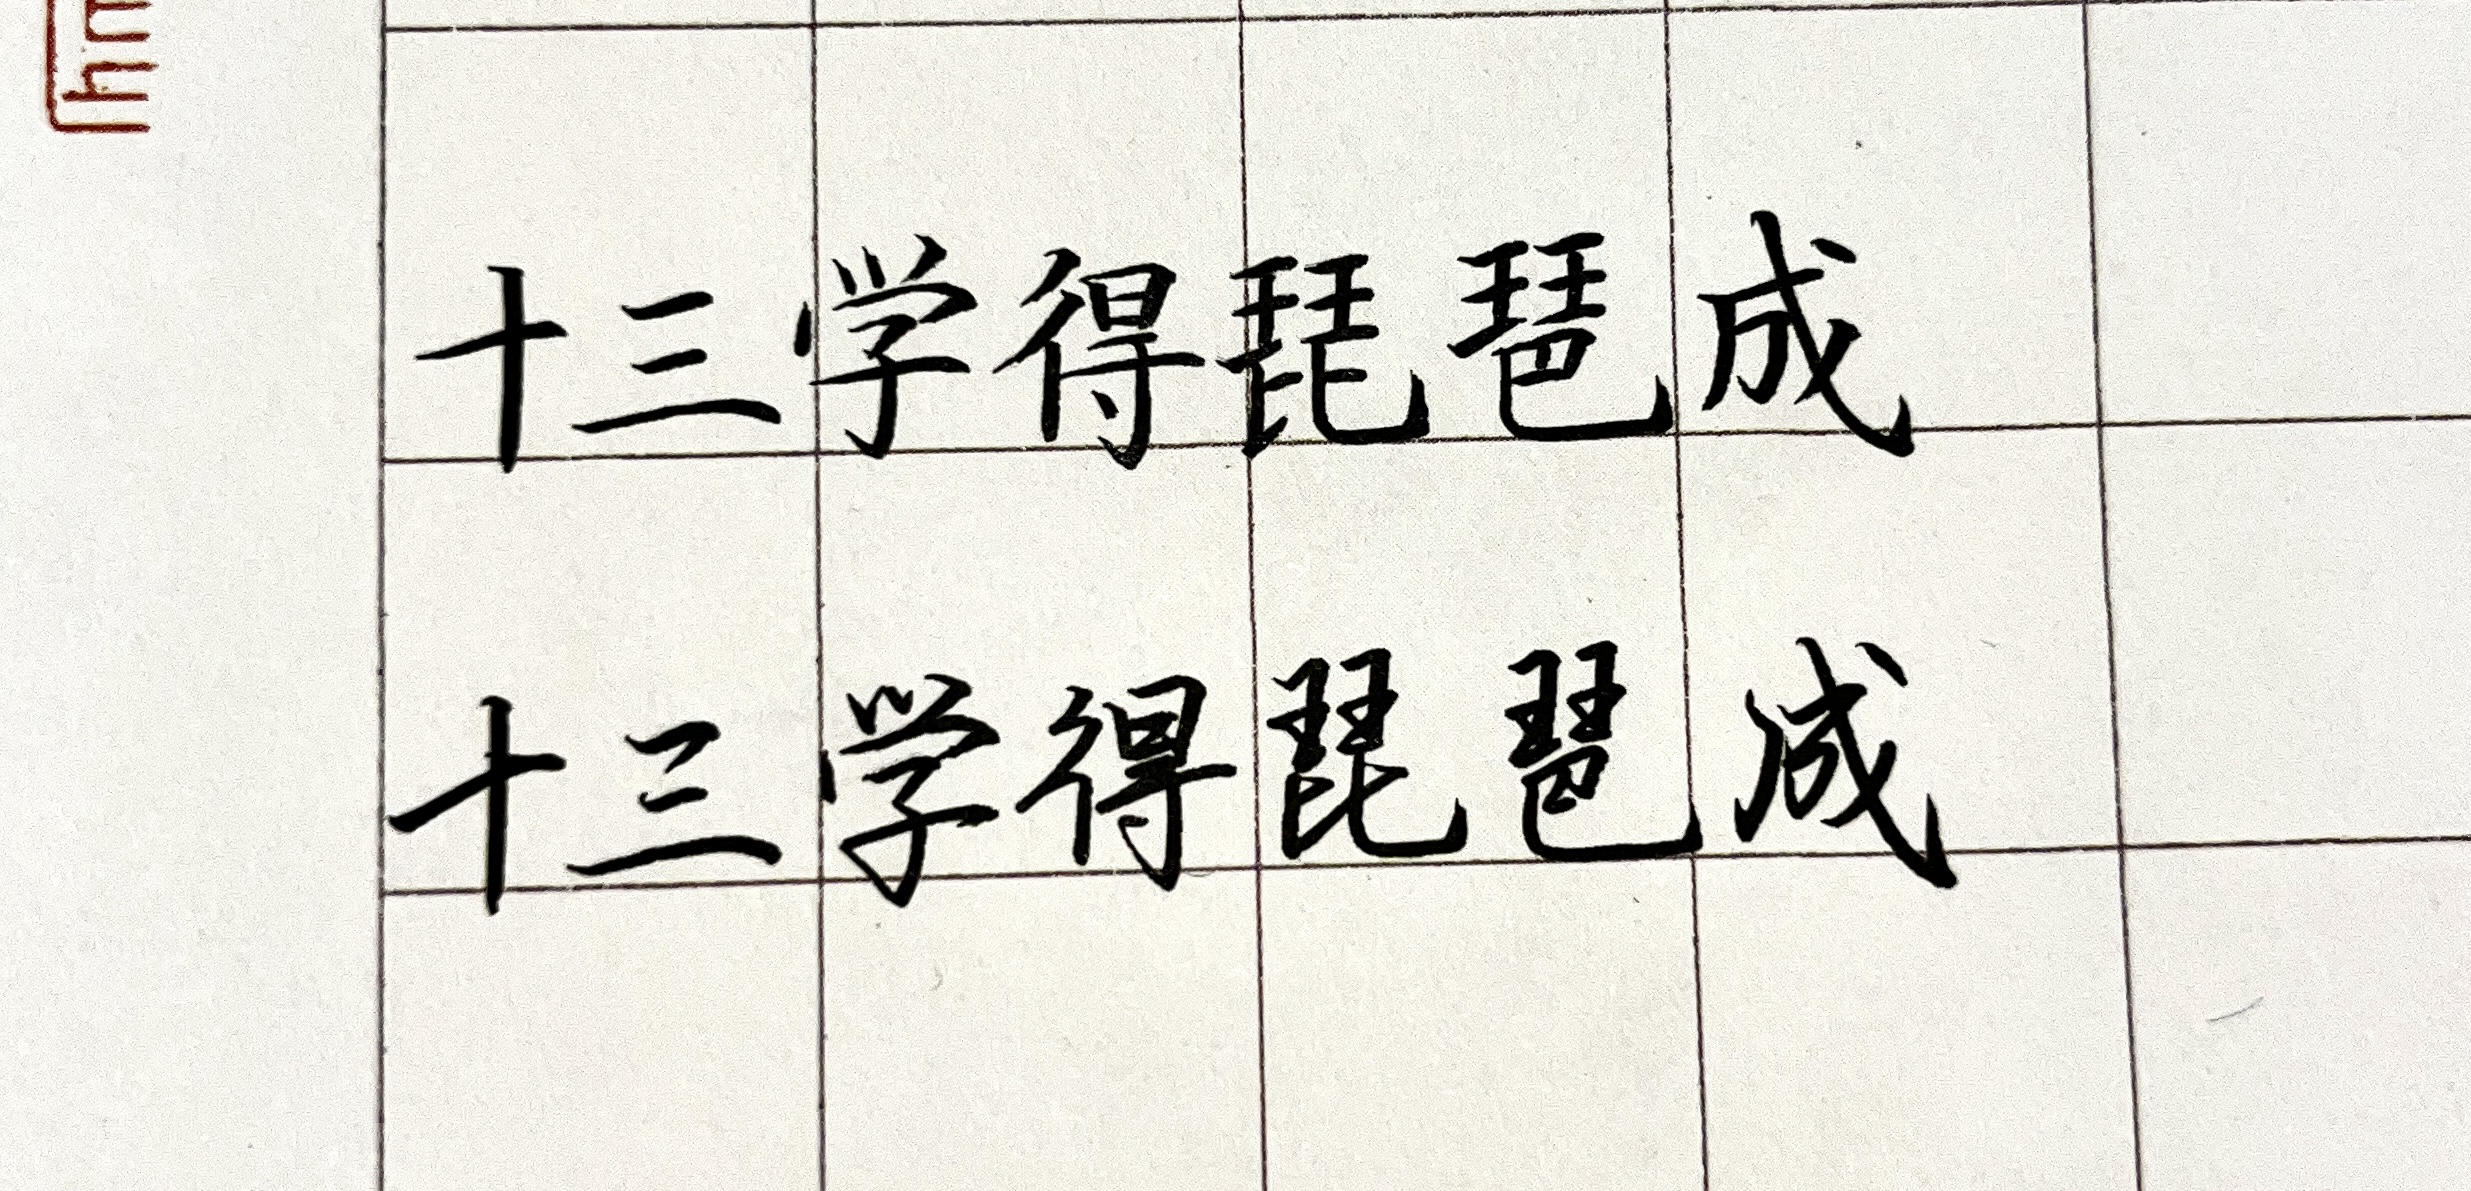 十三学得琵琶成
十三学得琵琶成